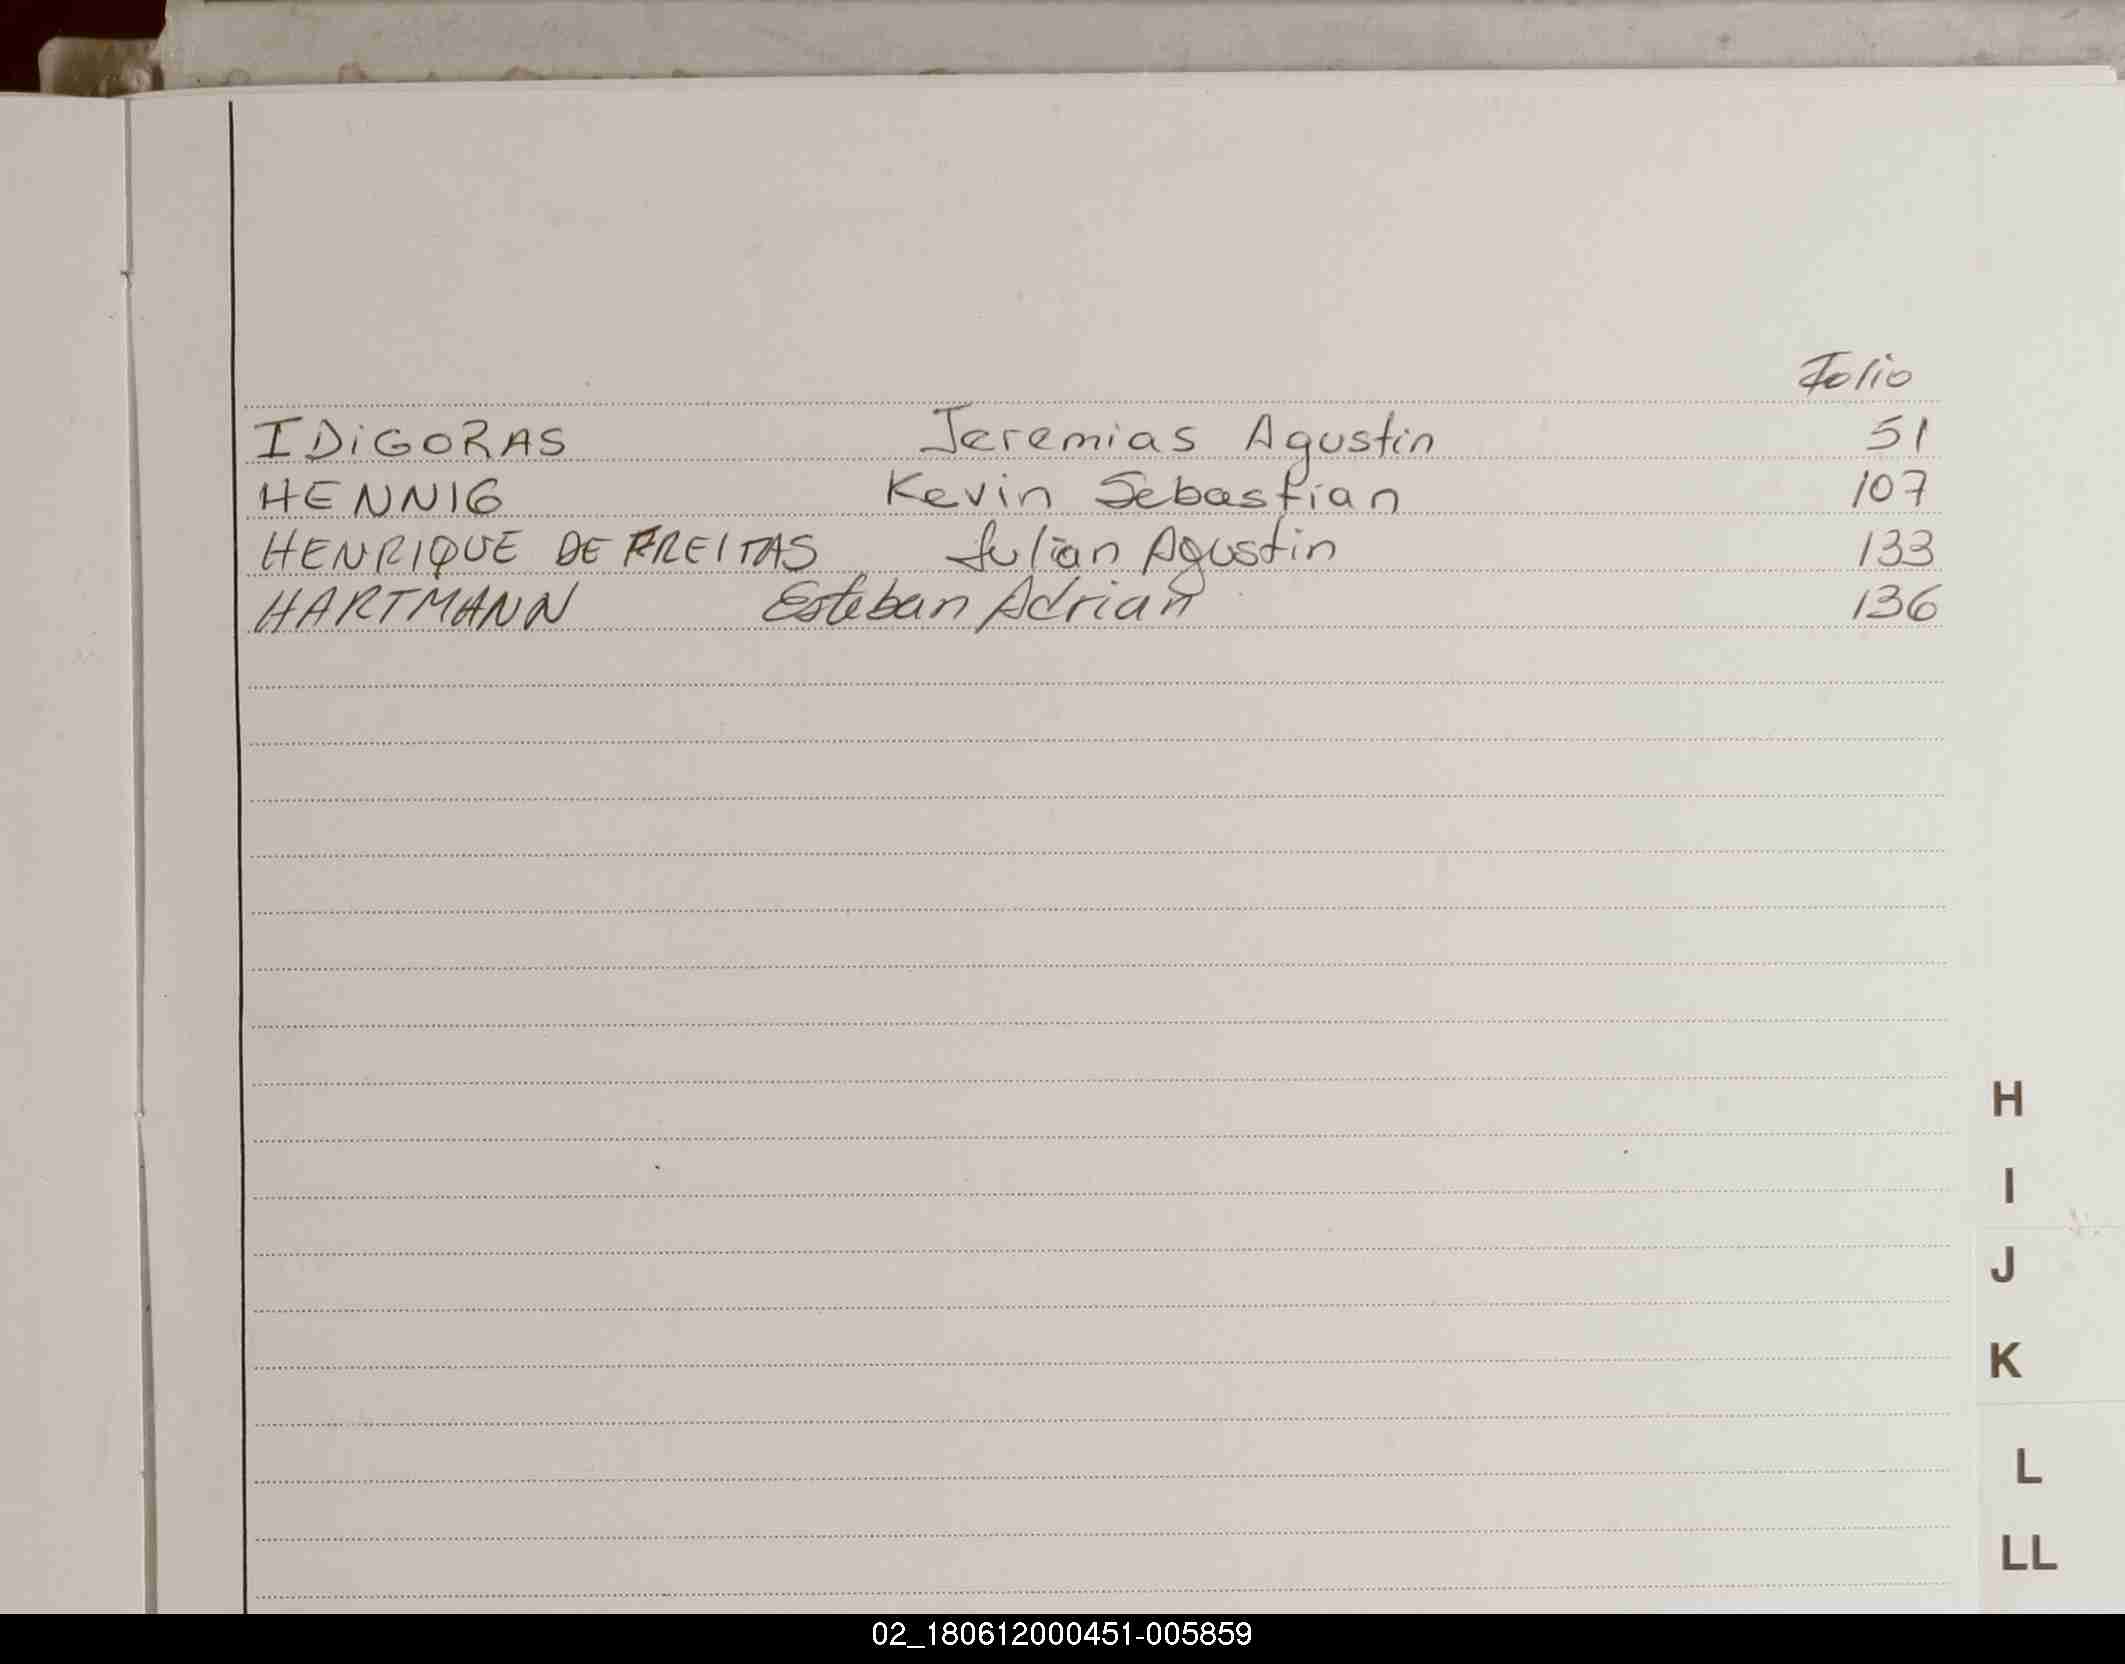 Folio
IDiGORAS Jeremias Agustin 51
HENNIG Kevin Sebastian 107
HENRIQUE DE FREITAS Julian Agustin 133
HARTMANN Esteban Adrian 136
H
I
J
K
L
LL
02_180612000451-005859